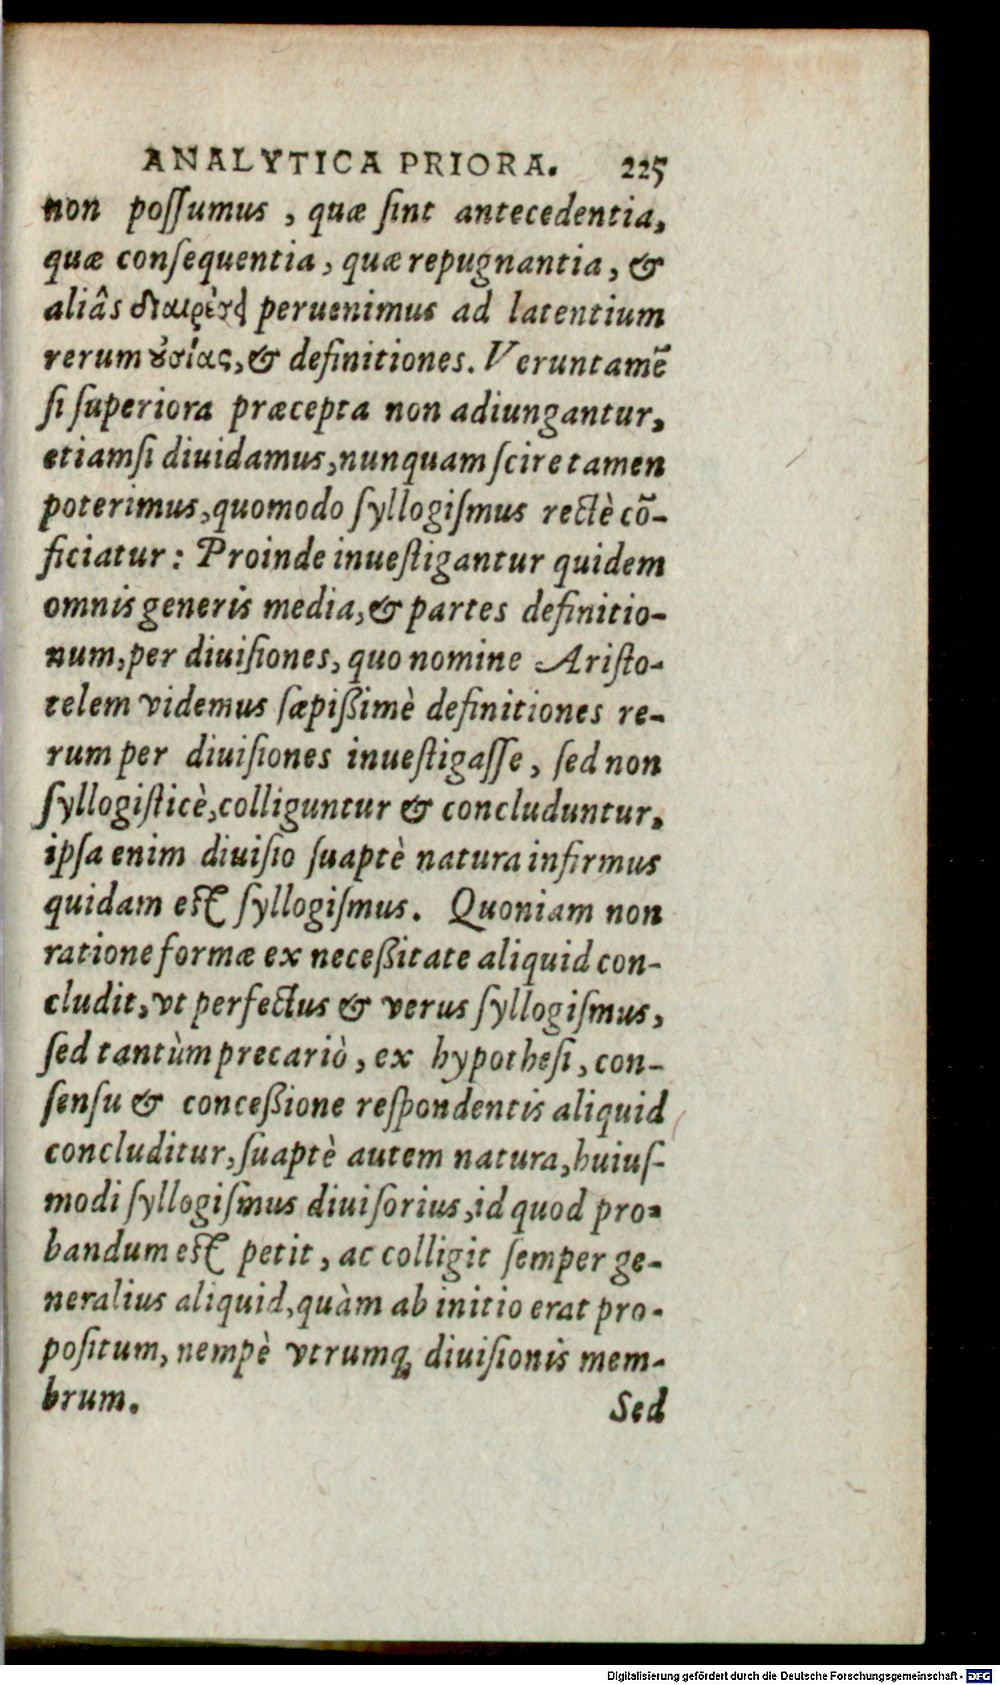 ANALYTICA PRIORA. 225
non poſſumus, quæ ſint antecedentia,
quæ conſequentia, quæ repugnantia, &
aliâs peruenimus ad latentium
rerum ȣ̓σίας, & definitiones. Veruntamē
ſi ſuperiora præcepta non adiungantur,
etiamſi diuidamus, nunquam ſcire tamen
poterimus, quomodo ſyllogiſmus rectè cō-
ficiatur: Proinde inueſtigantur quidem
omnis generis media, & partes definitio-
num, per diuiſiones, quo nomine Ariſto-
telem videmus ſæpißimè definitiones re-
rum per diuiſiones inueſtigaſſe, ſed non
ſyllogiſticè, colliguntur & concluduntur,
ipſa enim diuiſio ſuaptè natura infirmus
quidam eſt ſyllogiſmus. Quoniam non
ratione formæ ex neceßitate aliquid con-
cludit, vt perfectus & verus ſyllogiſmus,
ſed tantùm precariò, ex hypotheſi, con-
ſenſu & conceßione reſpondentis aliquid
concluditur, ſuaptè autem natura, huiuſ-
modi ſyllogiſmus diuiſorius, id quod pro-
bandum eſt petit, ac colligit ſemper ge-
neralius aliquid, quàm ab initio erat pro-
poſitum, nempè vtrumq; diuiſionis mem-
brum. Sed
Digitalisierung gefördert durch die Deutsche Forschungsgemeinschaft - DFG